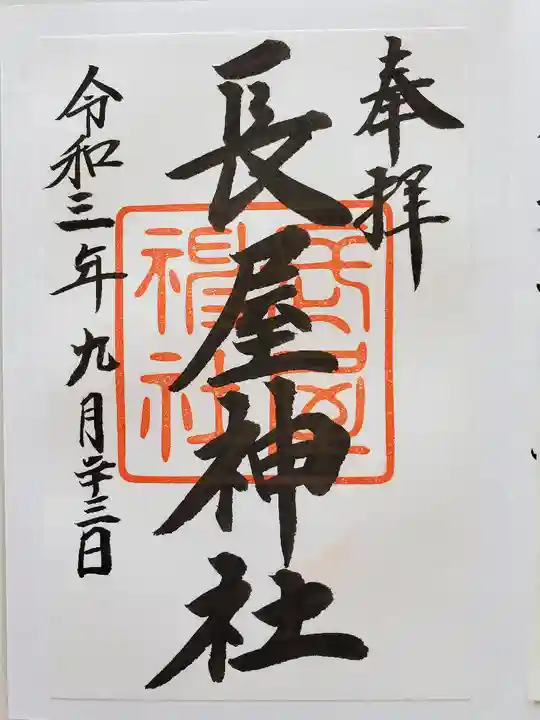 奉拝
長屋神社
長屋神社
令和三年九月廿三日